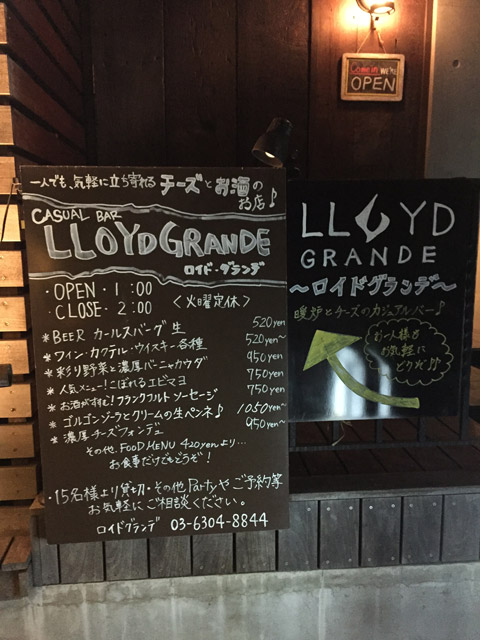 Come in we're
OPEN
一人でも、気軽に立ち寄れる チーズとお酒の
お店♪
CASUAL BAR
LLOYD GRANDE
ロイド・グランデ
・OPEN・1:00
・CLOSE・2:00 <火曜定休>
＊BEER カールスバーグ 生 520yen
＊ワイン・カクテル・ウイスキー各種 520yen〜
＊彩り野菜と濃厚バーニャカウダ 950yen
＊人気メニュー!こぼれるエビマヨ 750yen
＊お酒がすすむ!フランクフルトソーセージ 750yen
＊ゴルゴンゾーラとクリームの生ペンネ♪ 1050yen〜
＊濃厚チーズフォンデュ 950yen〜
その他、FOOD MENU 420yenより…
お食事だけでもどうぞ!
・15名様より貸切・その他Partyやご予約等
お気軽にご相談ください。
ロイドグランデ 03-6304-8844
LLOYD
GRANDE
〜ロイドグランデ〜
暖炉とチーズのカジュアルバー♪
お一人様も
お気軽に
どうぞ♪